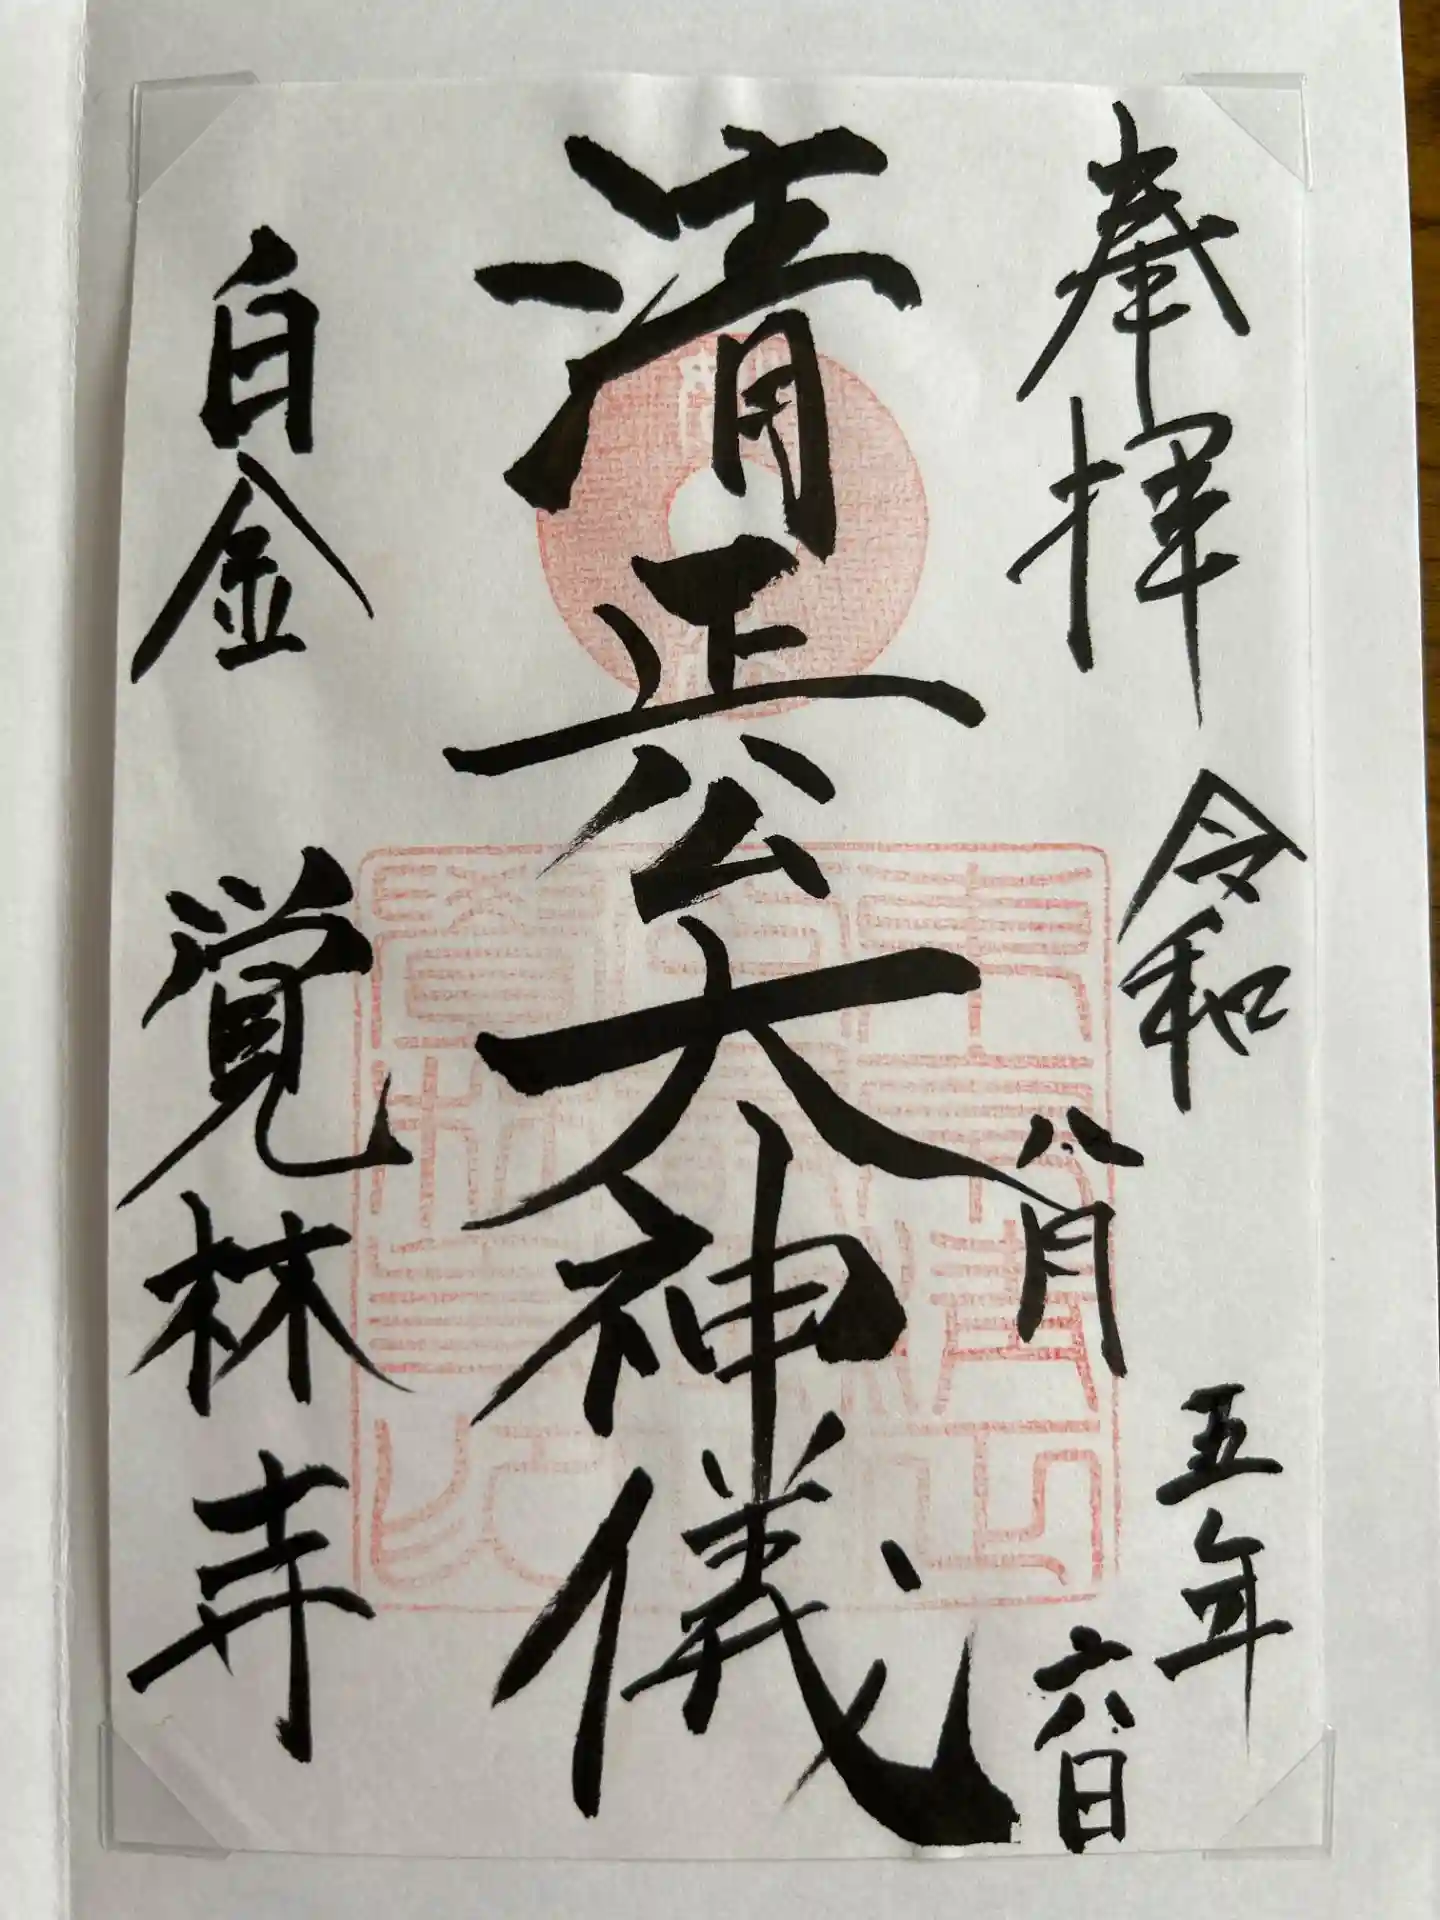 奉拝
令和五年
八月六日
清正公大神儀
白金 覚林寺